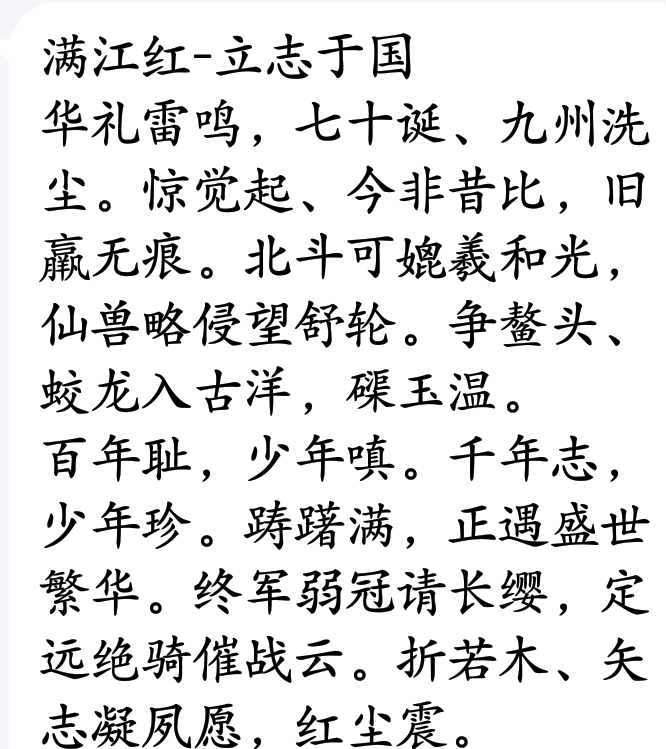 满江红-立志于国
华礼雷鸣，七十诞、九州洗
尘。惊觉起、今非昔比，旧
羸无痕。北斗可媲羲和光，
仙兽略侵望舒轮。争鳌头、
蛟龙入古洋，磲玉温。
百年耻，少年嗔。千年志，
少年珍。踌躇满，正遇盛世
繁华。终军弱冠请长缨，定
远绝骑催战云。折若木、矢
志凝夙愿，红尘震。